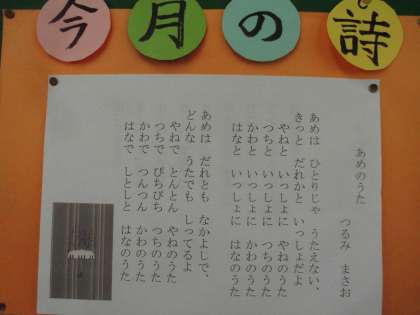 今月の詩
あめのうた
つるみ まさお
あめは ひとりじゃ うたえない、
きっと だれかと いっしょだよ
やねと いっしょに やねのうた
つちと いっしょに つちのうた
かわと いっしょに かわのうた
はなと いっしょに はなのうた
あめは だれとも なかよしで、
どんな うたでも しってるよ
やねで とんとん やねのうた
つちで ぴちぴち つちのうた
かわで つんつん かわのうた
はなで しとしと はなのうた